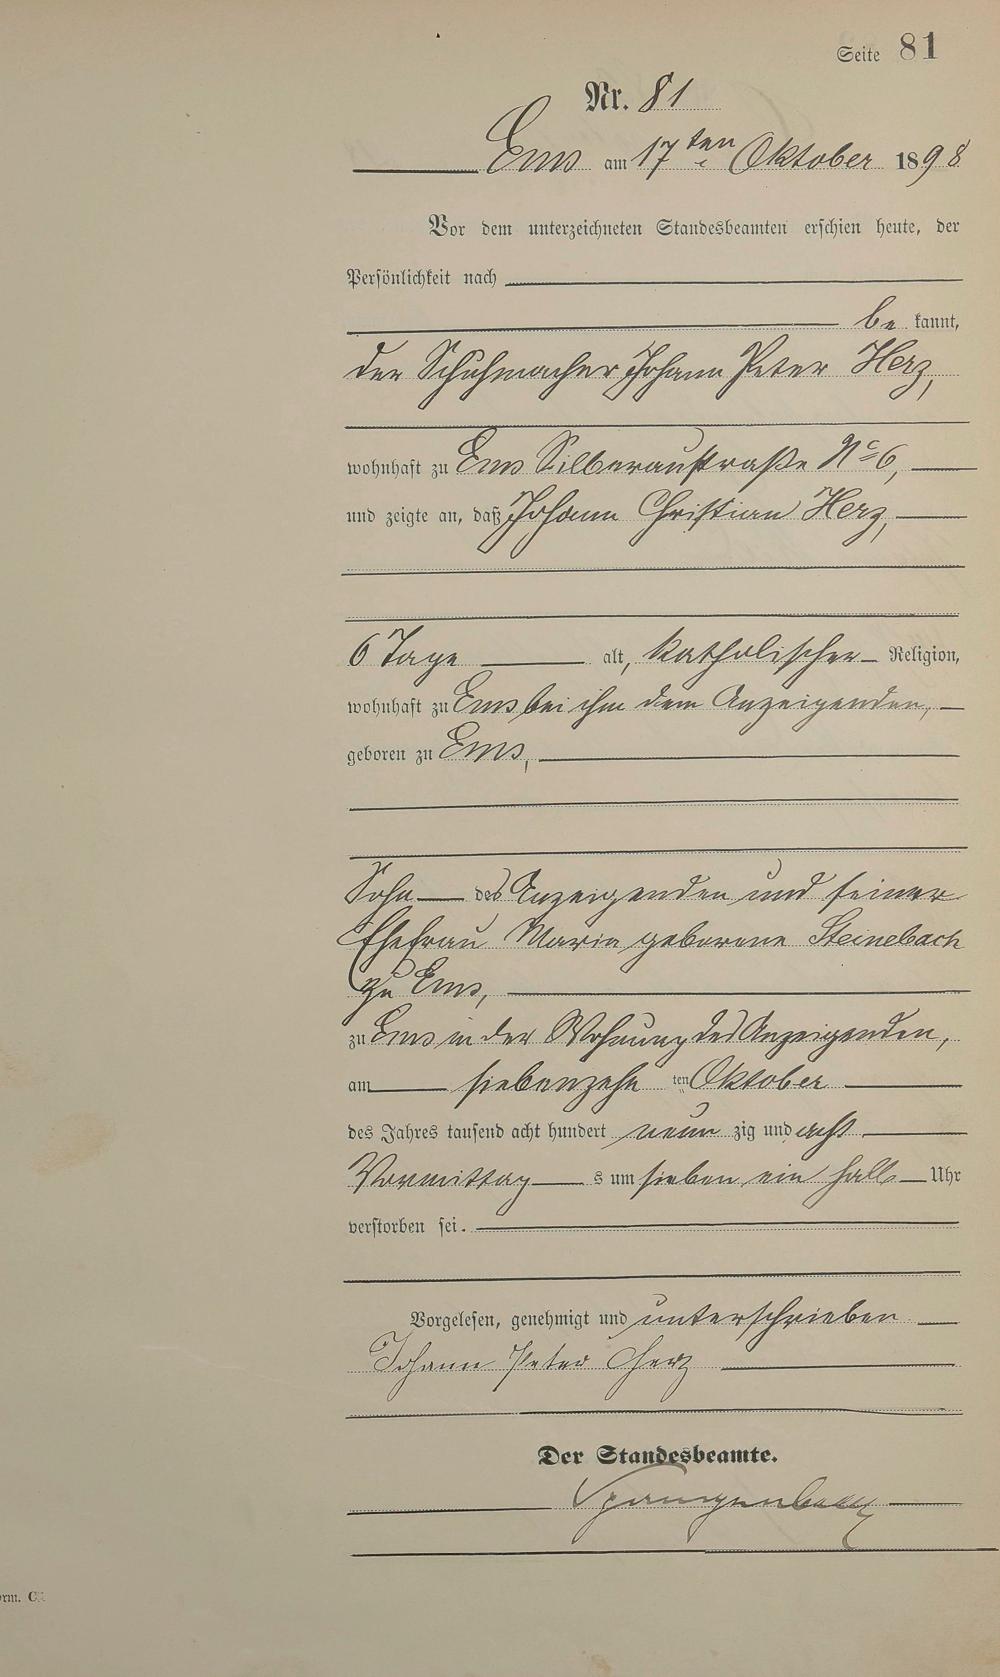 Seite 81
Nr. 81
Ems am 17ten Oktober 1898
Vor dem unterzeichneten Standesbeamten erschien heute, der
Persönlichkeit nach
be kannt,
der Schuhmacher Johann Peter Herz,
wohnhaft zu Ems Silberaustraße No 6,
und zeigte an, daß Johann Christian Herz,
6 Tage alt, katholischer Religion,
wohnhaft zu Ems bei ihm dem Anzeigenden,
geboren zu Ems,
Sohn des Anzeigenden und seiner
Ehefrau Maria geborene Steinebach
zu Ems,
zu Ems in der Wohnung des Anzeigenden,
am siebenzehn ten Oktober
des Jahres tausend acht hundert neun zig und acht
Vormittag s um sieben ein halb Uhr
verstorben sei.
Vorgelesen, genehmigt und unterschrieben
Johann Peter Herz
Der Standesbeamte.
rm. C.